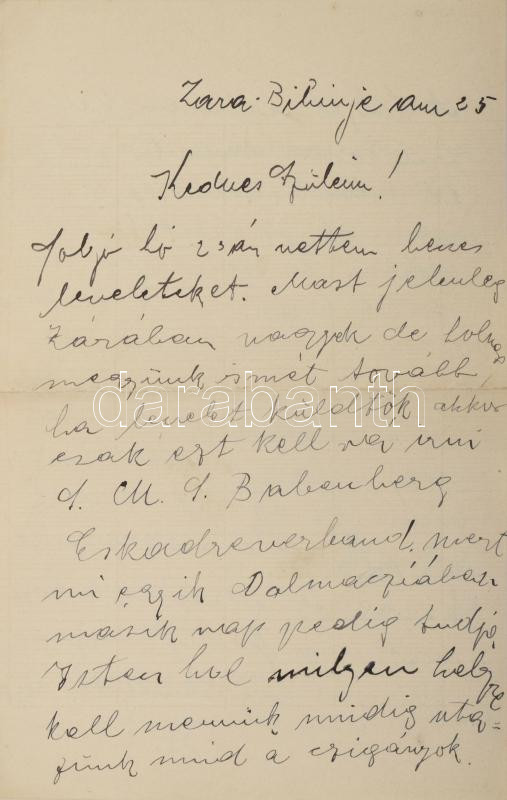 Zara-Bibinje am 25
Kedves Szüleim!
Folyó hó 23án vettem becses
leveleteket. Mast jelenleg
Zárában vagyok de holnap
megyünk ismét tovább
ha levelet küldtök akkor
csak ezt kell rá irni
S. M. S. Babenberg
Eskadreverband. mert
mi egyik Dalmacziában
másik nap pedig tudja
Isten hol milyen helyre
kell mennünk mindig uta=
zunk mind a czigányok.
darabanth